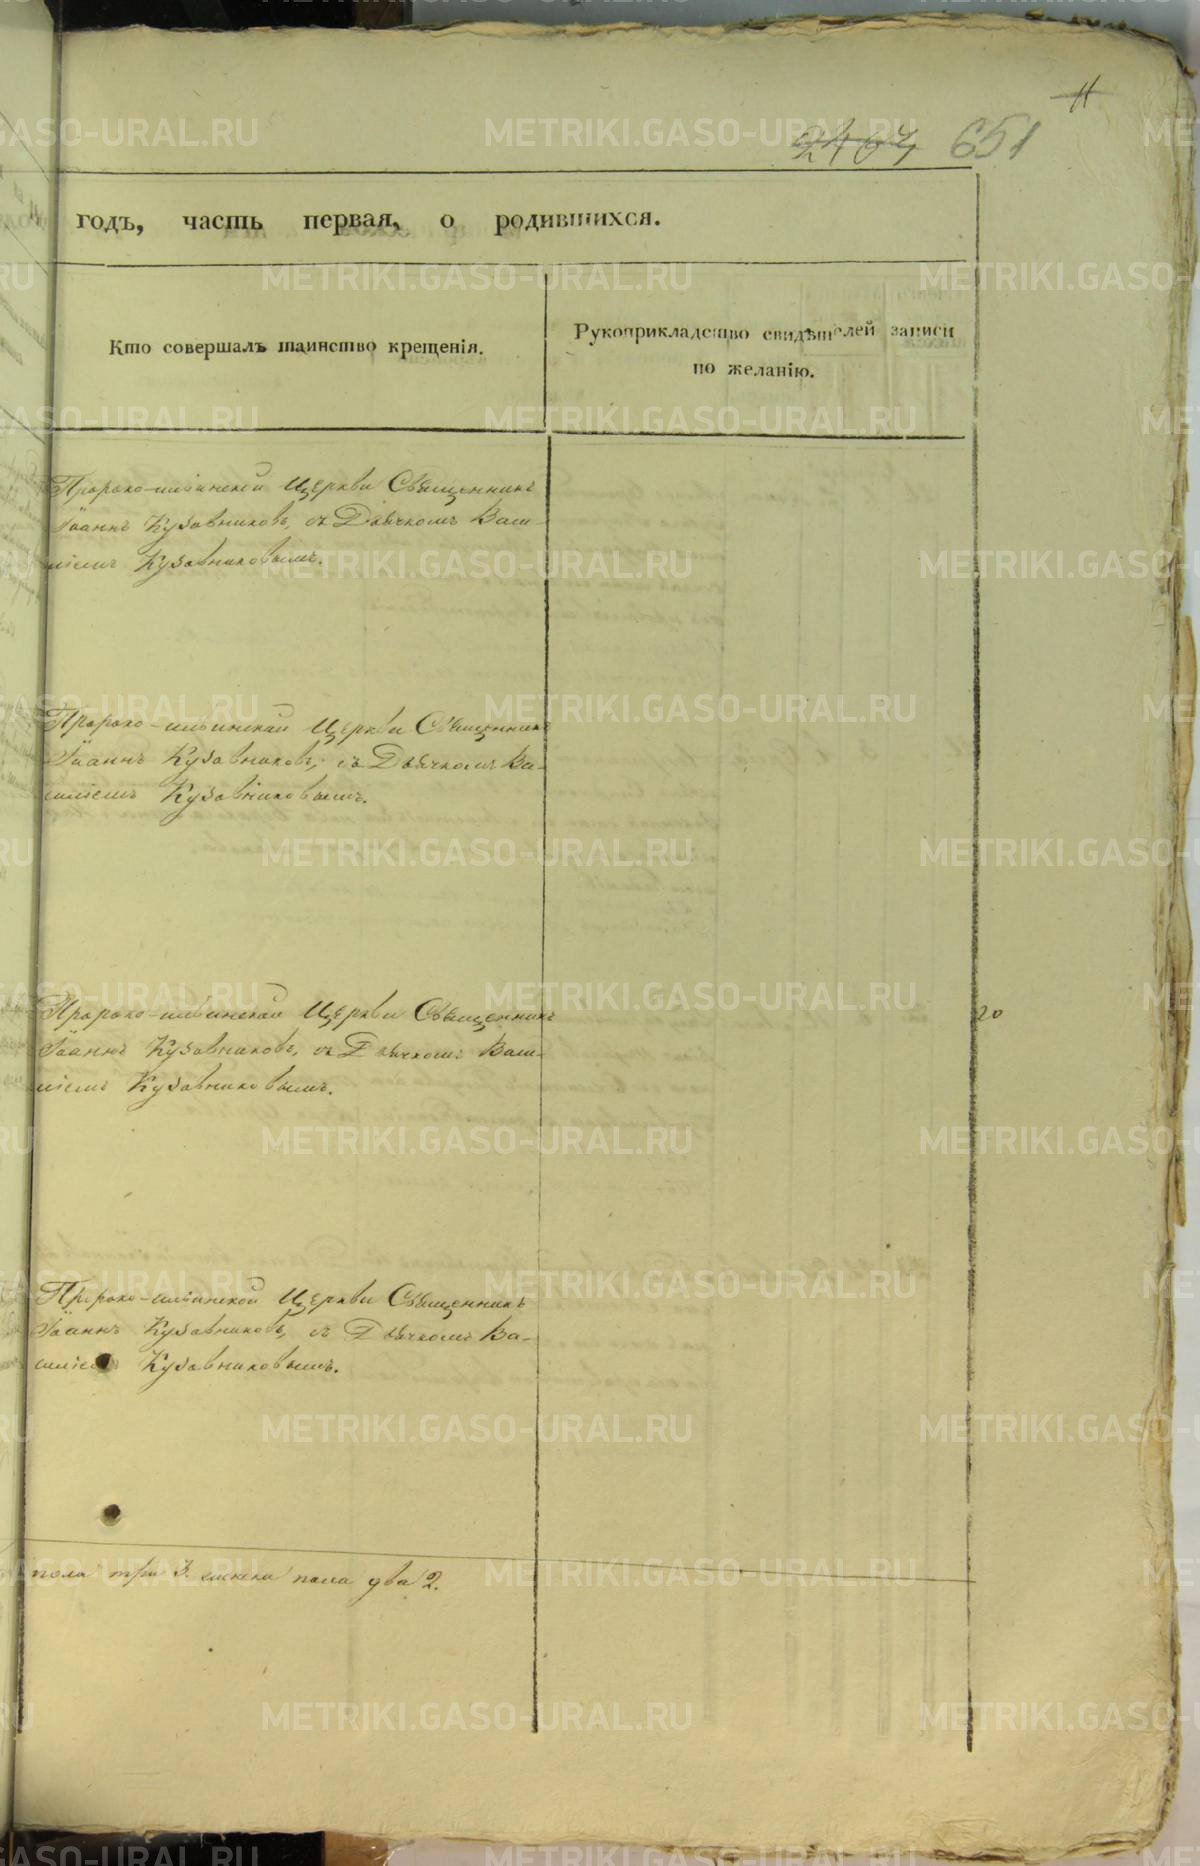 11
2467 651
годъ, часть первая, о родившихся.
Кто совершалъ таинство крещенія.
Рукоприкладство свидѣтелей записи
по желанію.
Пророко-ильинской Церкви Священникъ
Іоаннъ Кузовниковъ, съ Дьячкомъ Васи-
ліемъ Кузовниковымъ.
Пророко-ильинской Церкви Священникъ
Іоаннъ Кузовниковъ, съ Дьячкомъ Ва-
силіемъ Кузовниковымъ.
Пророко-ильинской Церкви Священникъ
Іоаннъ Кузовниковъ, съ Дьячкомъ Васи-
ліемъ Кузовниковымъ.
20
Пророко-ильинской Церкви Священникъ
Іоаннъ Кузовниковъ, съ Дьячкомъ Ва-
силіемъ Кузовниковымъ.
пола три 3. женска пола два 2.
METRIKI.GASO-URAL.RU